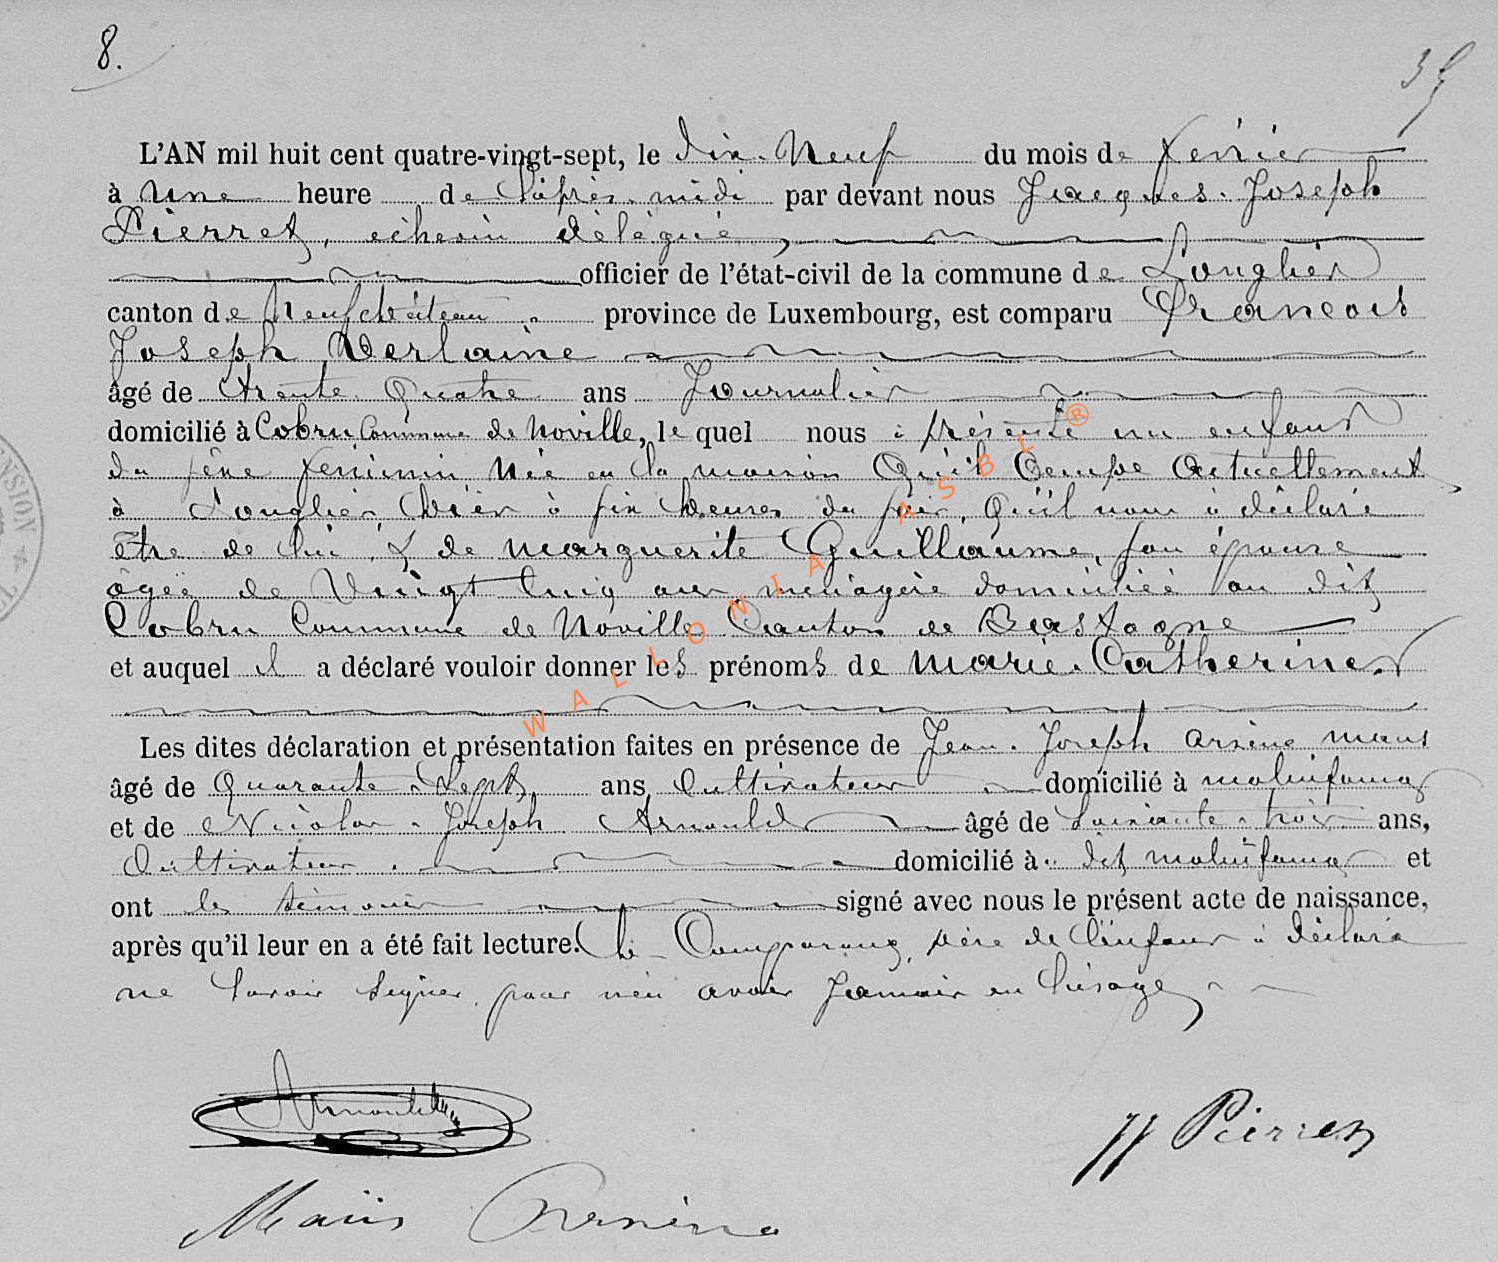 8.
35
L'AN mil huit cent quatre-vingt-sept, le dix-Neuf du mois de février
à une heure de l'après-midi par devant nous Jacques-Joseph
Pierret, échevin délégué,
officier de l'état-civil de la commune de Longlier
canton de Neufchâteau province de Luxembourg, est comparu François
Joseph Verlaine
âgé de trente-Quatre ans Journalier
domicilié à Cobru Commune de Noville, lequel nous à présenté un enfant
du sèxe féminin Née en la maison Qu'il Occupe Actuellement
à Longlier hier à six heures du soir, Qu'il nous à déclaré
être de lui & de Marguerite Guillaume, son épouse
âgée de Vingt Cinq ans, ménagère domiciliée au dit
Cobru Commune de Noville Canton de Bastogne
et auquel il a déclaré vouloir donner les prénoms de Marie-Catherine.
Les dites déclaration et présentation faites en présence de Jean-Joseph Arsène Maus
âgé de Quarante-Sept ans Cultivateur domicilié à Molinfaing
et de Nicolas-Joseph Arnould âgé de soixante-trois ans,
Cultivateur domicilié à dit Molinfaing et
ont les témoins signé avec nous le présent acte de naissance,
après qu'il leur en a été fait lecture. Le Comparant, père de l'enfant à déclaré
ne savoir signer, pour n'en avoir Jamais eu l'usage
Arnould
JJ Pierret
Maus Arsène
WALLONIA ASBL ®